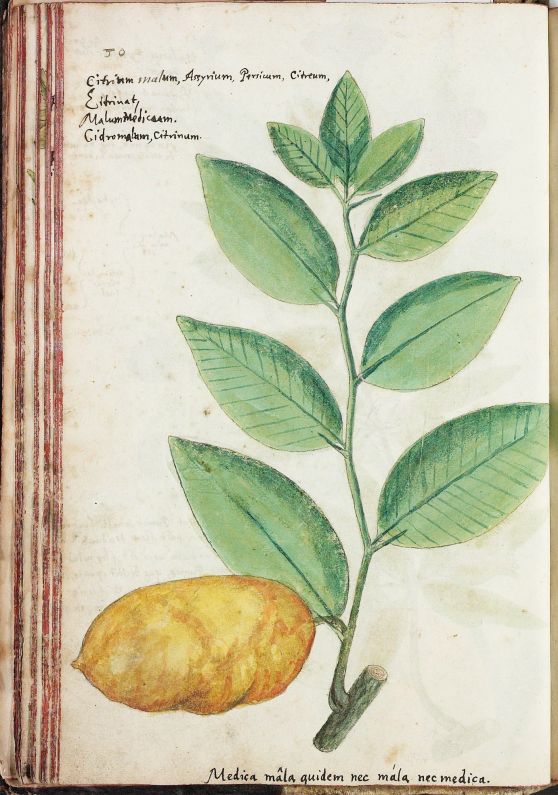 50
Citrium malum, Assyrium, Persicum, Citreum,
Citrinat,
Malum Medicam.
Cidromalum, Citrinum.
Medica mâla quidem nec mála nec medica.